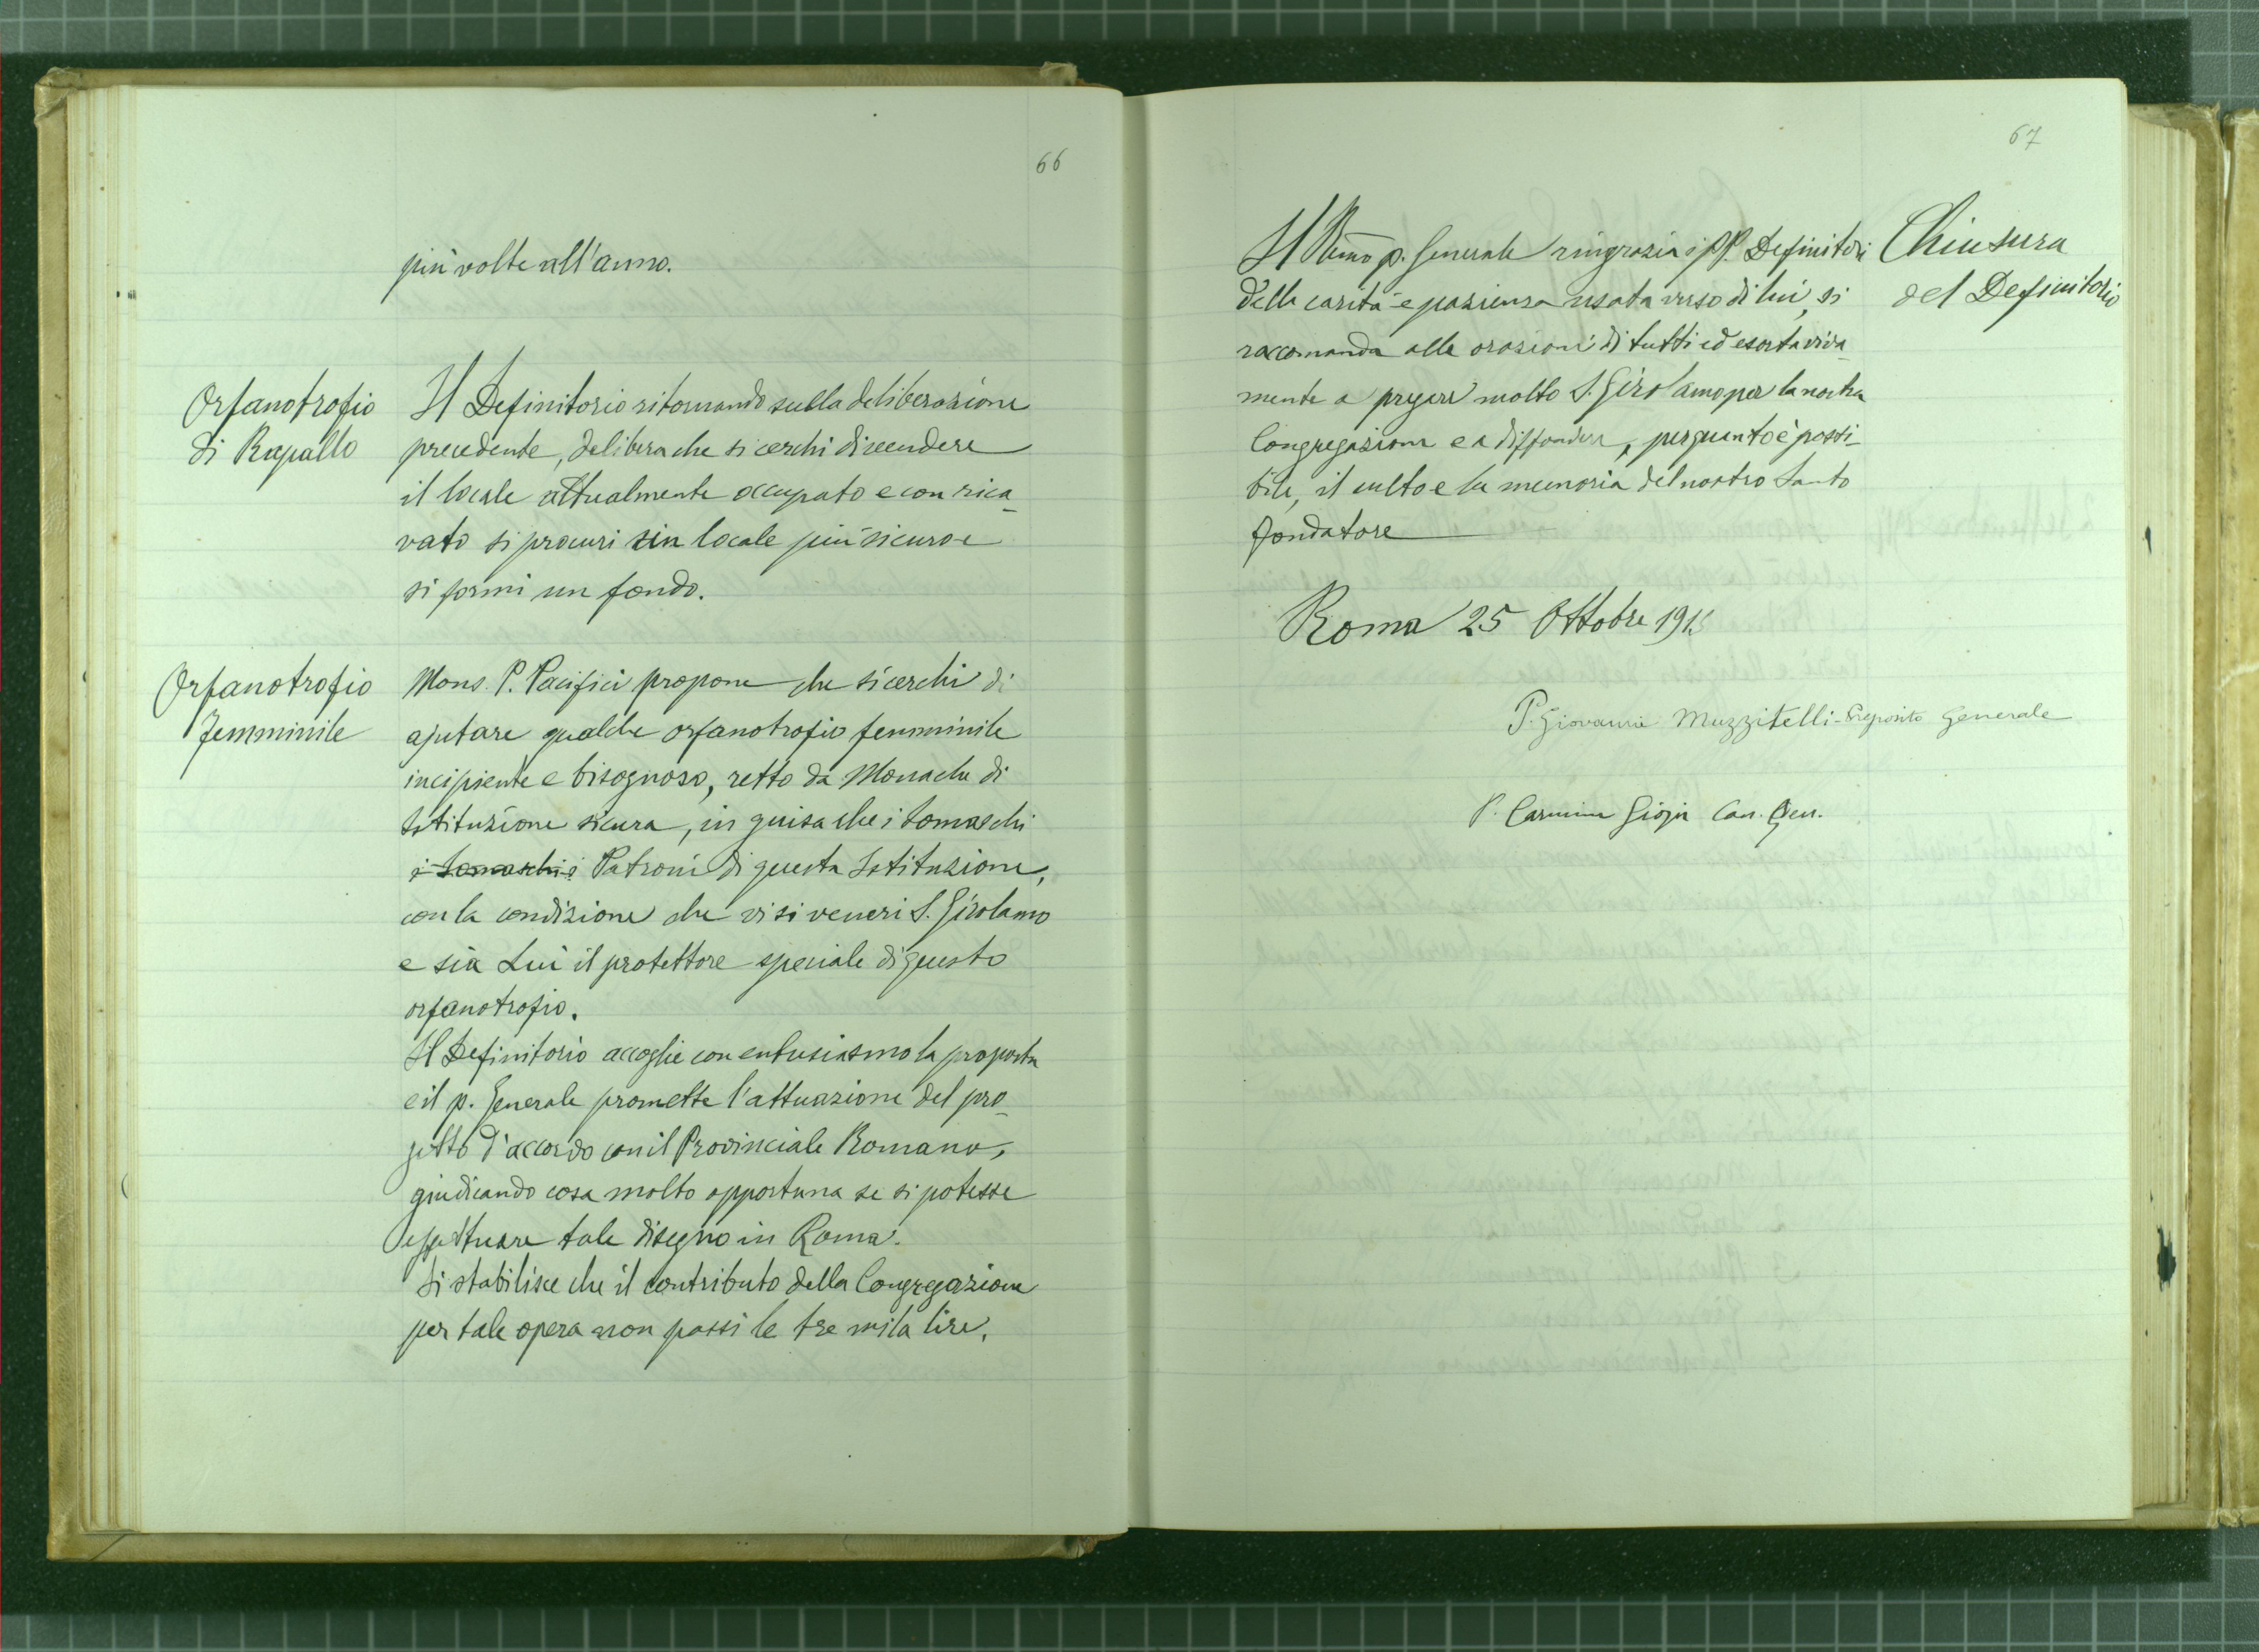 66
più volte all'anno.
Orfanotrofio
di Rapallo
Il Definitorio ritornando sulla deliberazione
precedente, delibera che si cerchi di vendere
il locale attualmente occupato e con rica-
vato si procuri un locale più sicuro e
si formi un fondo.
Orfanotrofio
femminile
Mons. P. Pacifici propone che si cerchi di
ajutare qualche orfanotrofio femminile
incipiente e bisognoso, retto da Monache di
Istituzione sicura, in guisa che i Somaschi
i Somaschi i Patroni di questa Istituzione,
con la condizione che vi si veneri S. Girolamo
e sia Lui il protettore speciale di questo
orfanotrofio.
Il Definitorio accoglie con entusiasmo la proposta
e il p. Generale promette l'attuazione del pro-
getto d'accordo con il Provinciale Romano,
giudicando cosa molto opportuna se si potesse
effettuare tale disegno in Roma.
Si stabilisce che il contributo della Congregazione
per tale opera non passi le tre mila lire.
67
Il Rmo p. Generale ringrazia i PP. Definitori
della carità e pazienza usata verso di lui, si
raccomanda alle orazioni di tutti ed esorta viva-
mente a pregare molto S. Girolamo per la nostra
Congregazione e a diffondere, per quanto è possi-
bile, il culto e la memoria del nostro Santo
fondatore
Chiusura
del Definitorio
Roma 25 Ottobre
P. Giovanni Muzzitelli - Preposito Generale
P. Carmine Gioja Can. Gen.